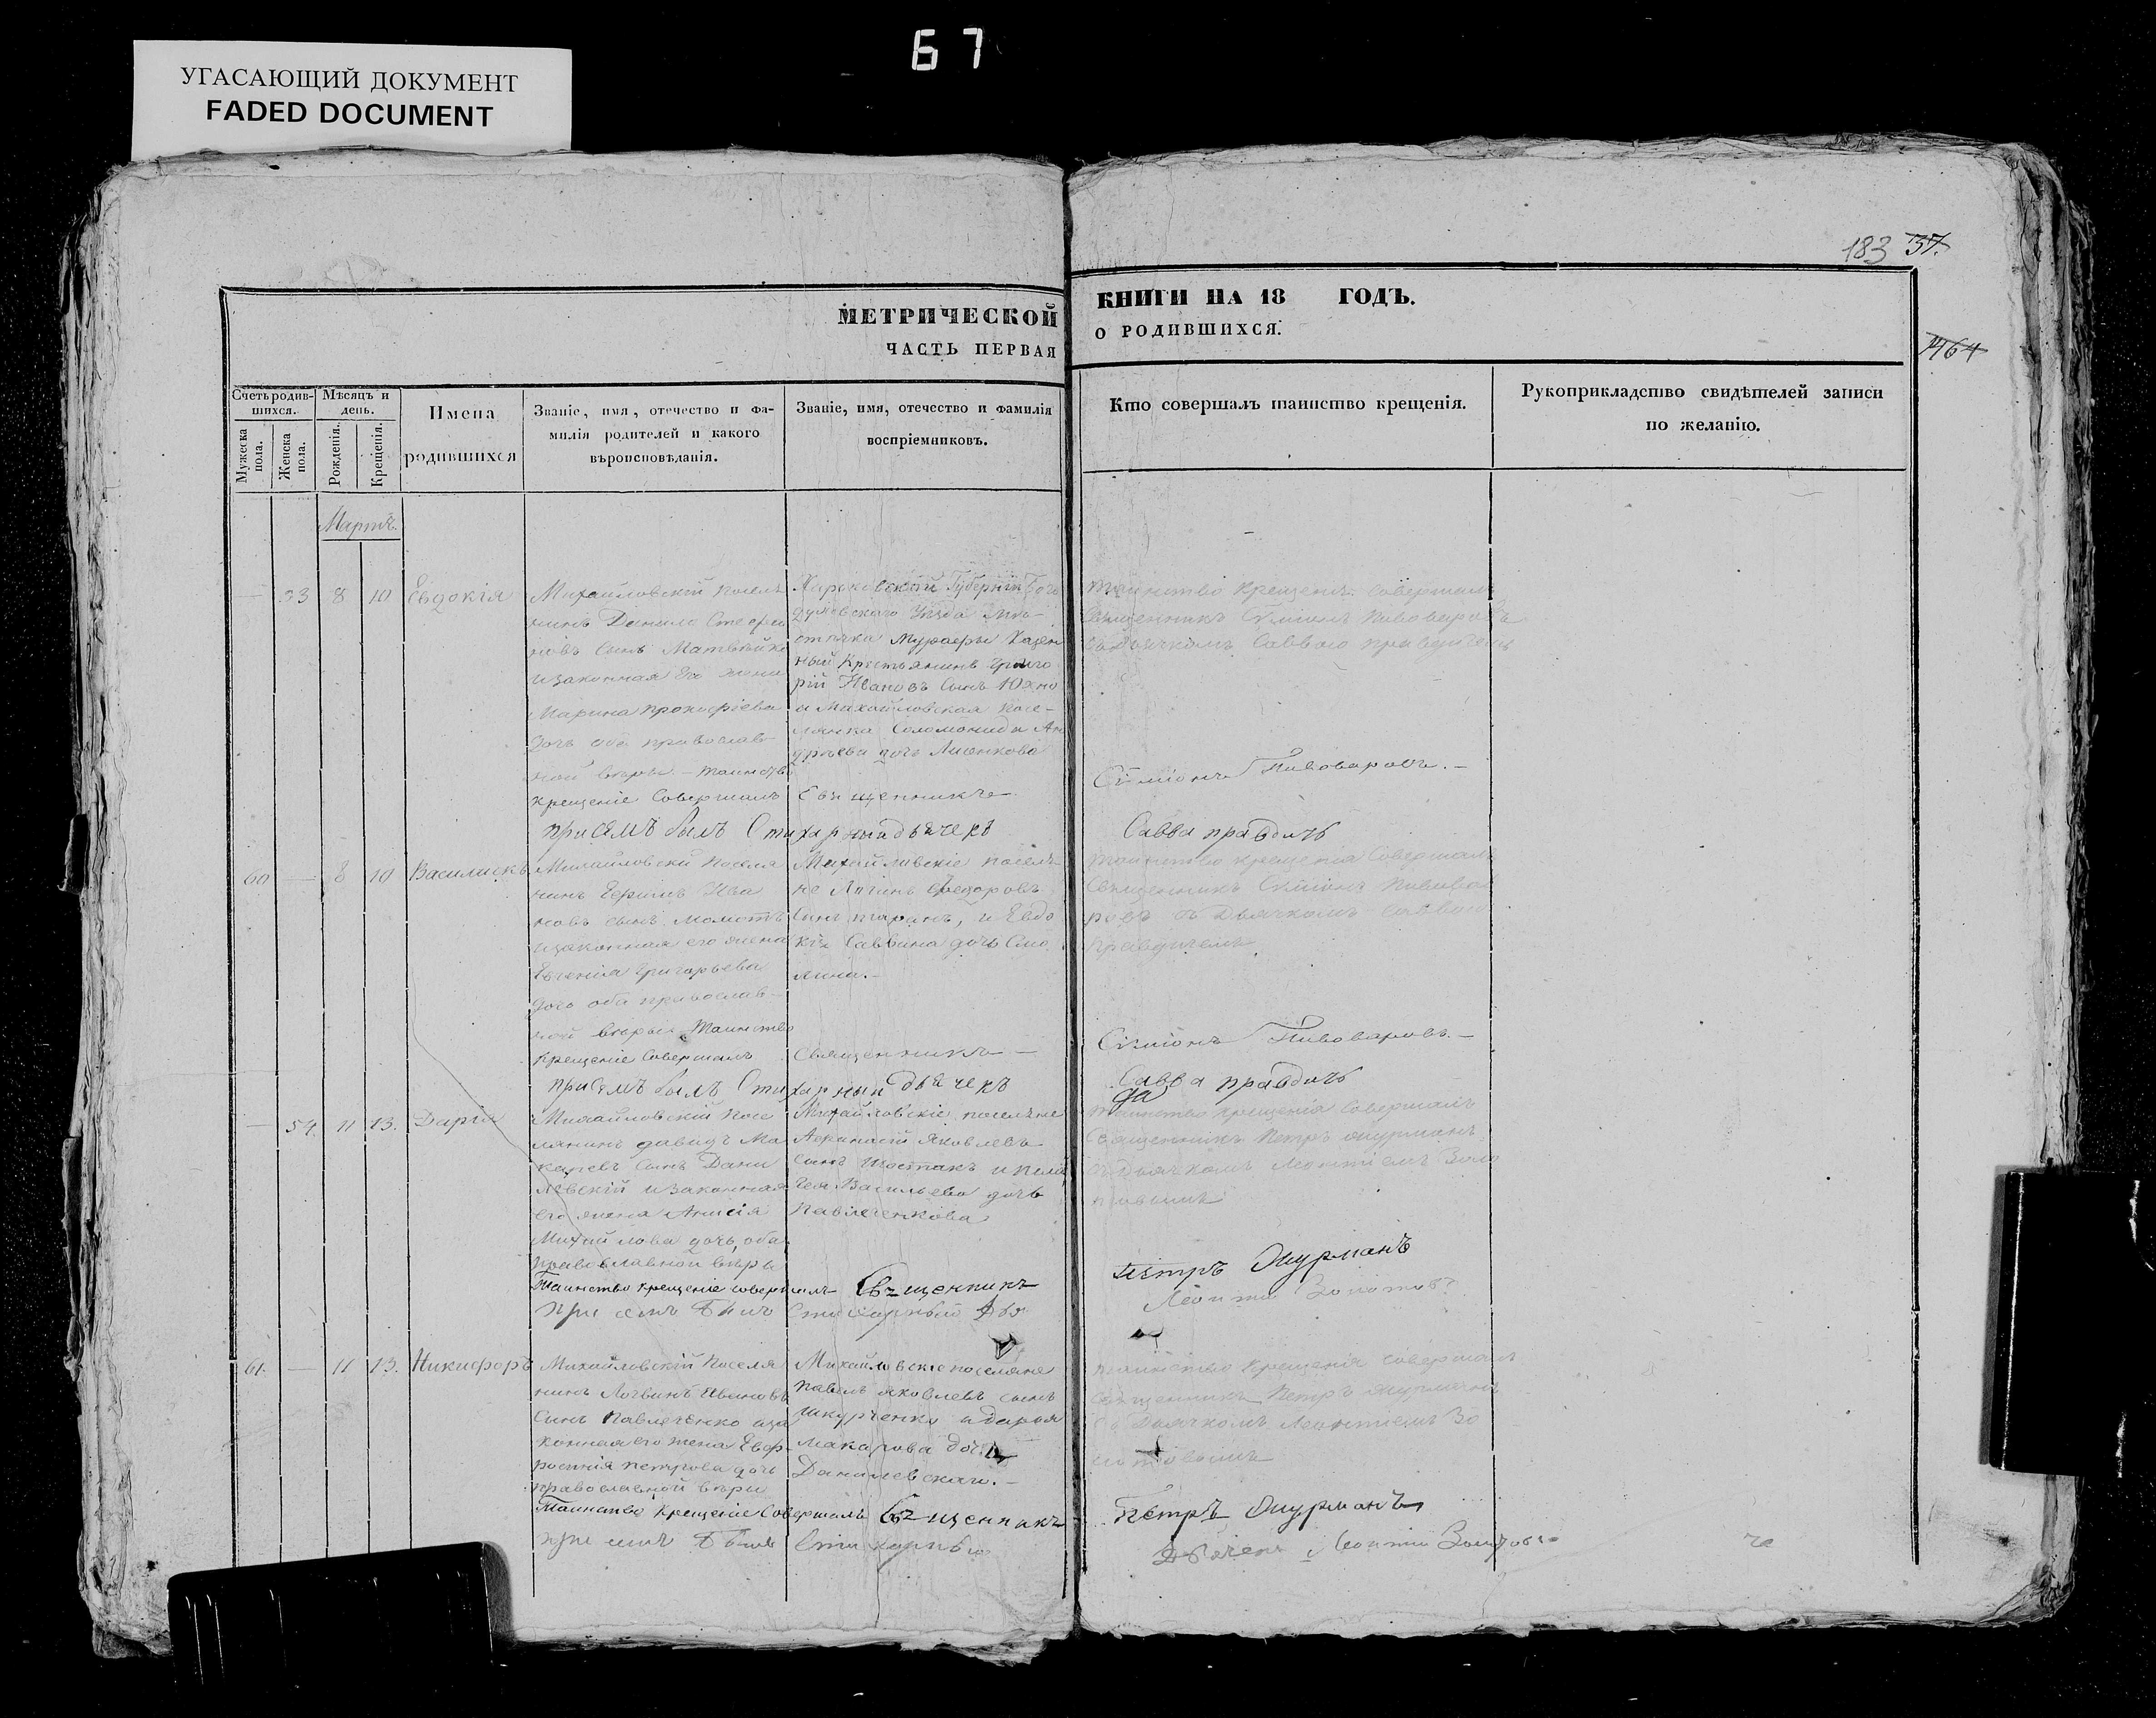 67
УГАСАЮЩИЙ ДОКУМЕНТ
FADED DOCUMENT
183 37.
МЕТРИЧЕСКОЙ
ЧАСТЬ ПЕРВАЯ
КНИГИ НА 18 ГОДЪ.
О РОДИВШИХСЯ.
1464
Счетъ родив-
шихся.
Мужеска
пола.
Женска
пола.
Мѣсяцъ и
день.
Рожденія.
Крещенія.
Имена
родившихся
Званіе, имя, отечество и фа-
милія родителей и какого
вѣроисповѣданія.
Званіе, имя, отечество и фамилія
воспріемниковъ.
Кто совершалъ таинство крещенія.
Рукоприкладство свидѣтелей записи
по желанію.
Мартъ
— 53 8 10 Евдокія
Михайловскій Посел
нинъ Данило Стефа
новъ сынъ
изаконная Его жена
Марина Прокофіева
дочь оба православ
ной вѣры. – Таинство
крещеніе Совершалъ Священникъ
при семъ былъ Стихарный дьячекъ
Харьковской Губерніи Бого
духовскаго Уѣзда
Мурафы Казен
ный Крестьянинъ Григо
рій Ивановъ Сынъ Юхно
а Михайловская Посе-
лянка Соломонида Ан
дрѣева дочь
Таинство Крещенія Совершалъ
Священникъ Сѵміонъ Пивоваровъ
съ Дьячкомъ Саввою
Сѵміонъ Пивоваровъ. –
Савва Правдичь
60 — 8 10 Василискъ
Михайловскій Поселя
нинъ Ефимъ Ива
новъ сынъ
изаконная его жена
Евгенія Григорьева
дочь оба православ-
ной вѣры Таинство
Крещеніе Совершалъ Священникъ —
при семъ былъ Стихарный дьячекъ
Михайливскіе поселя
не Логинъ Федоровъ
Сынъ Таранъ, и Евдо
кія Саввина дочь
Таинство крещенія Совершалъ
Священникъ Сѵміонъ Пивова
ровъ съ Дьячкомъ Саввою
Правдичемъ
Сѵміонъ Пивоваровъ. –
Савва Правдичь
— 54. 11 13. Дарія
Михайловскій Посе
лянинъ Давидъ Ма
каревъ Сынъ Дани
левскій изаконная
его жена Анисія
Михайлова дочь, оба
православной вѣры
Таинство Крещеніе совершалъ Священникъ
При семъ Былъ Стихарный Дья
Михайловскіе поселяне
Афанасій Яковлевъ
сынъ Шостакъ и Пела
гея Васильева дочь
Павлеченкова
Таинство крещенія Совершалъ
Священникъ Петръ
съ дьячкомъ Леонтіемъ Золо
товымъ
Петръ
Леонтій Золотовъ
61. — 11 13. Никифоръ
Михайловскій Поселя
нинъ Логвинъ Ивановъ
Сынъ Павлеченко иза
конная его жена Евф-
росинія Петрова дочь
православной вѣры
Таинство Крещеніе Совершалъ Священникъ
при семъ Былъ Стихарный
Михайловскіе поселяне
Павелъ Яковлевъ сынъ
Шкурченко и Дарья
Макарова дочь
Данилевская. –
Таинство Крещенія совершалъ
Священникъ Петръ
съ Дьячкомъ Леонтіемъ Зо
лотовымъ
Петръ
Дьячекъ Леонтій Золотовъ